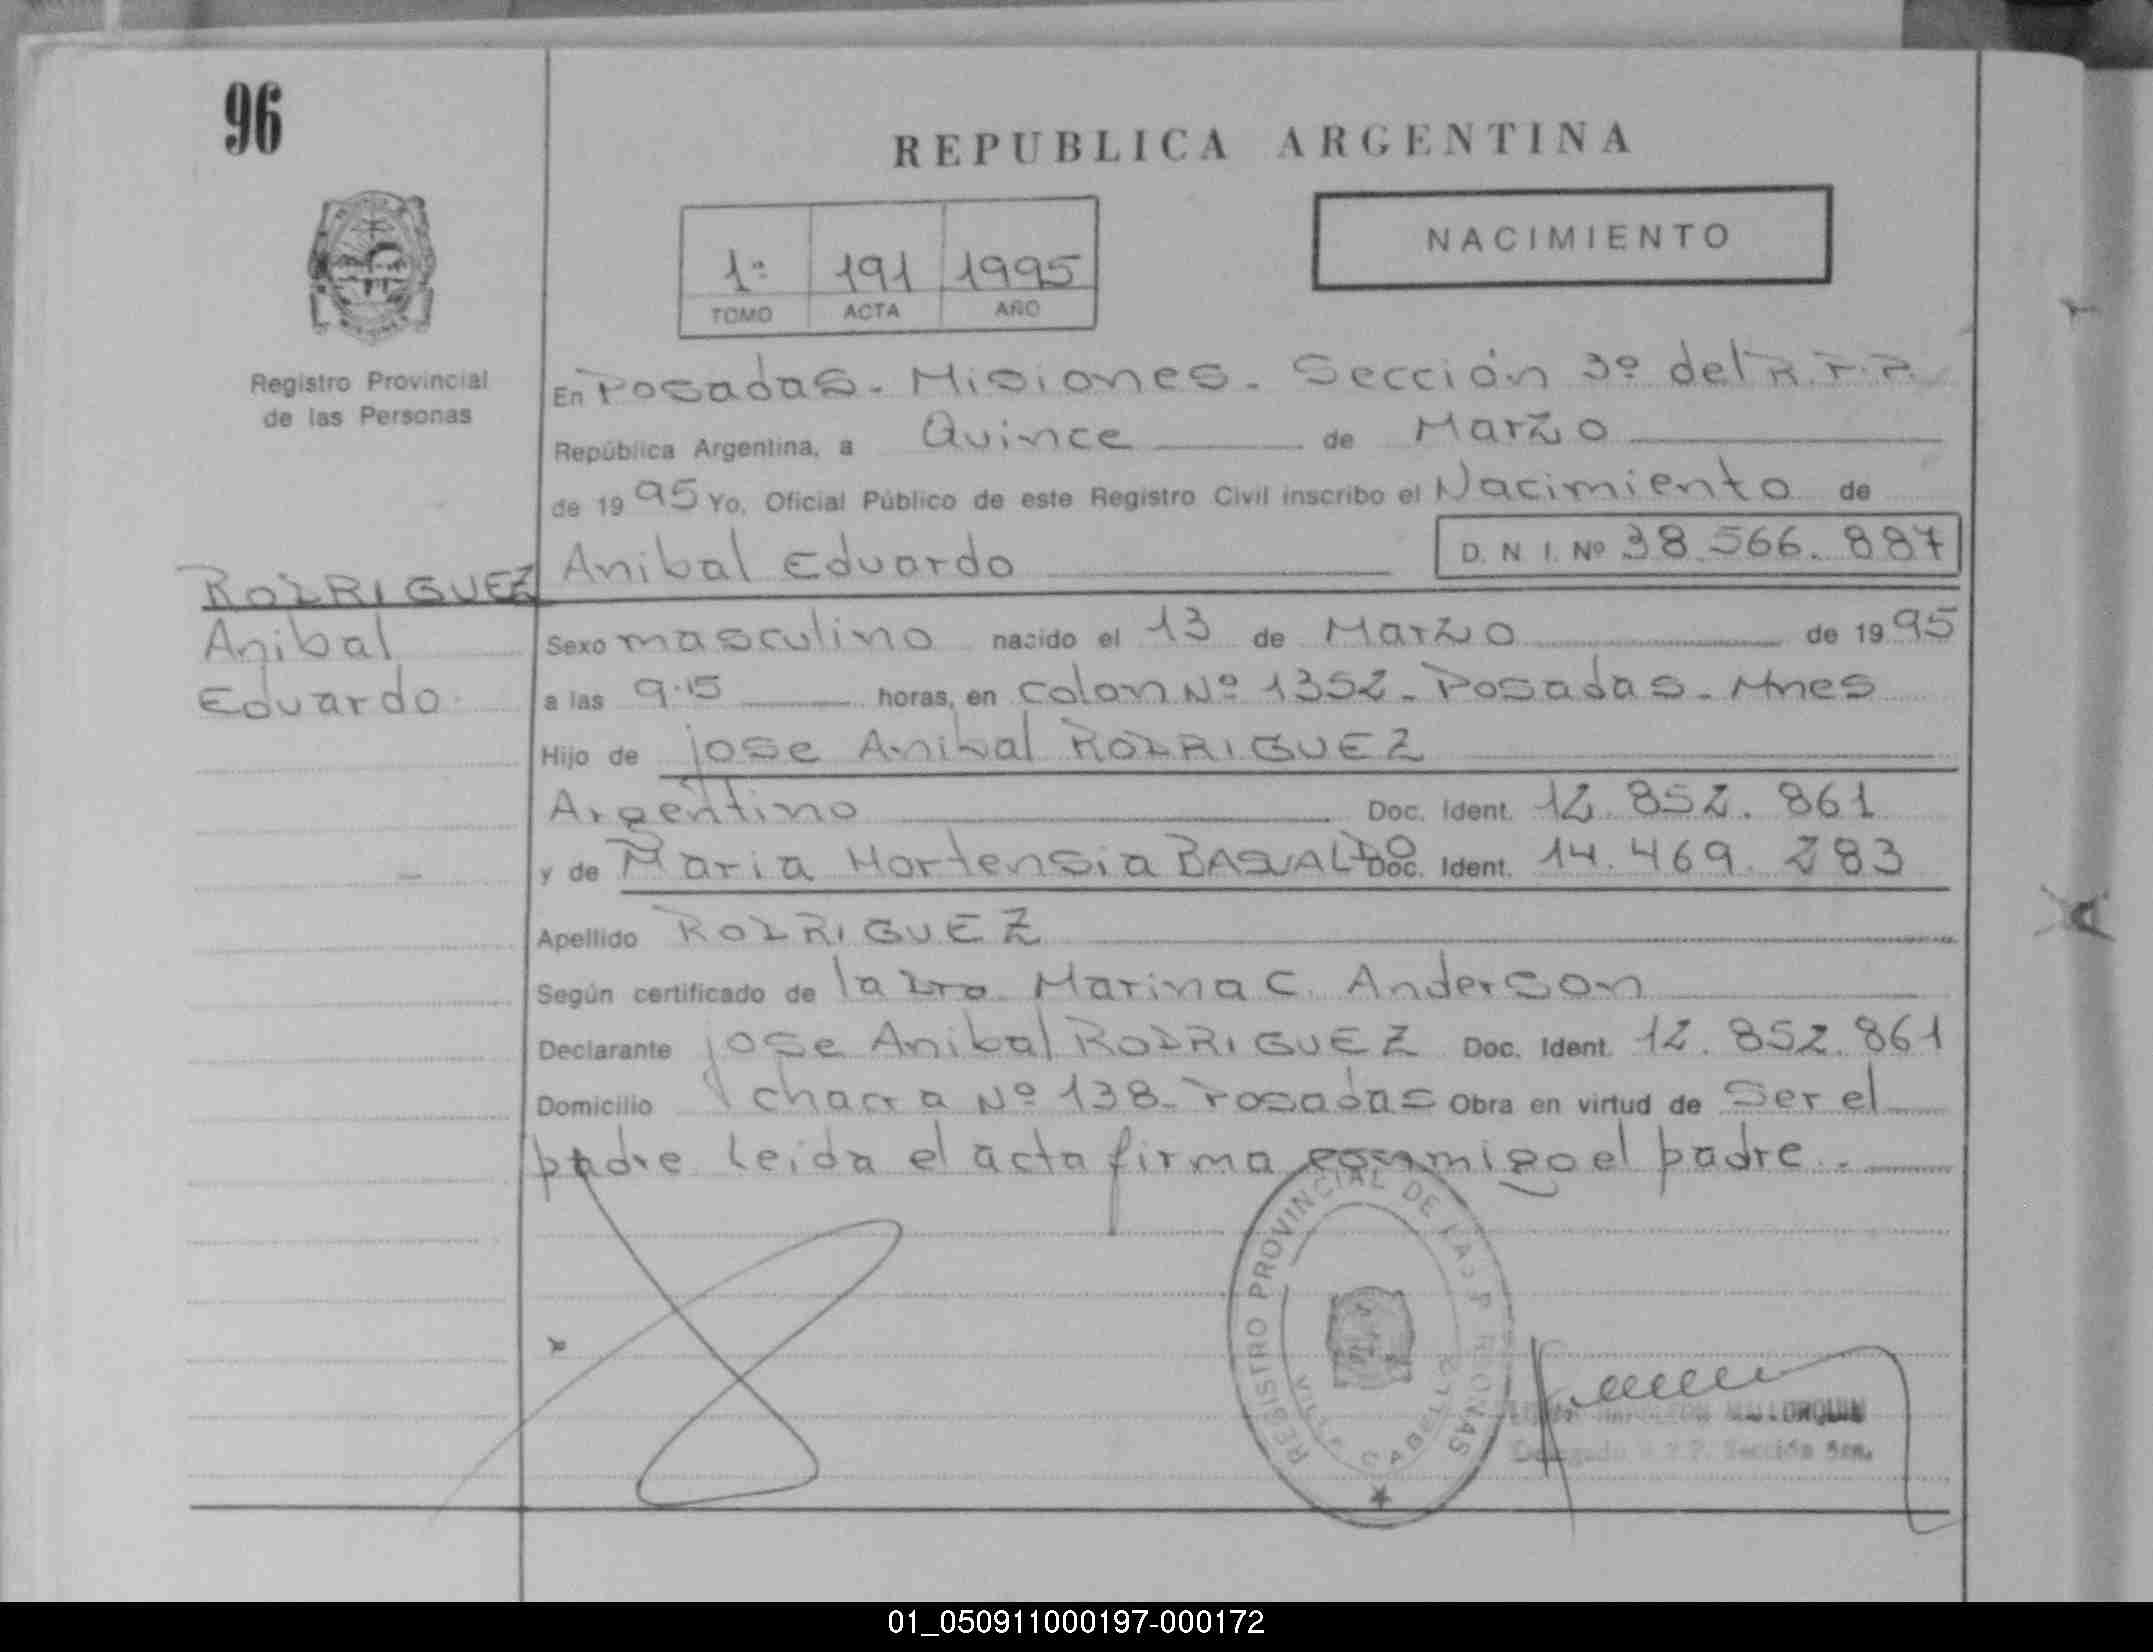 96
REPUBLICA ARGENTINA
1º 191 1995
TOMO ACTA AÑO
NACIMIENTO
Registro Provincial
de las Personas
En Posadas - Misiones - Sección 3º del R.P.P.
República Argentina, a Quince de Marzo
de 1995 Yo, Oficial Público de este Registro Civil inscribo el Nacimiento de
Anibal Eduardo D. N. I. Nº 38.566.887
RODRIGUEZ
Anibal
Eduardo.
Sexo masculino nacido el 13 de Marzo de 1995
a las 9.15 horas, en Colon Nº 1352 - Posadas - Mnes
Hijo de jose Anibal RODRIGUEZ
Argentino Doc. Ident. 12.852.861
y de Maria Hortensia BASUALDO Doc. Ident. 14.469.283
Apellido RODRIGUEZ
Según certificado de la Dra Marina C. Anderson
Declarante jose Anibal RODRIGUEZ Doc. Ident. 12.852.861
Domicilio chacra Nº 138 - Posadas Obra en virtud de Ser el
padre Leida el acta firma conmigo el padre.
REGISTRO PROVINCIAL DE LAS PERSONAS
VILLA CABELLO
MALLORQUIN
Delegado R.P.P. Sección 3ra.
01_050911000197-000172